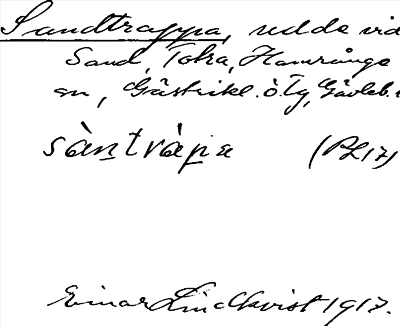 Sandtrappa, udde vid
Sand, Tolra, Hamrånge
sn, Gästrikl. o Ty, Gävleb. l
sàntràpa (PL17)
Einar Lindkvist 1917.